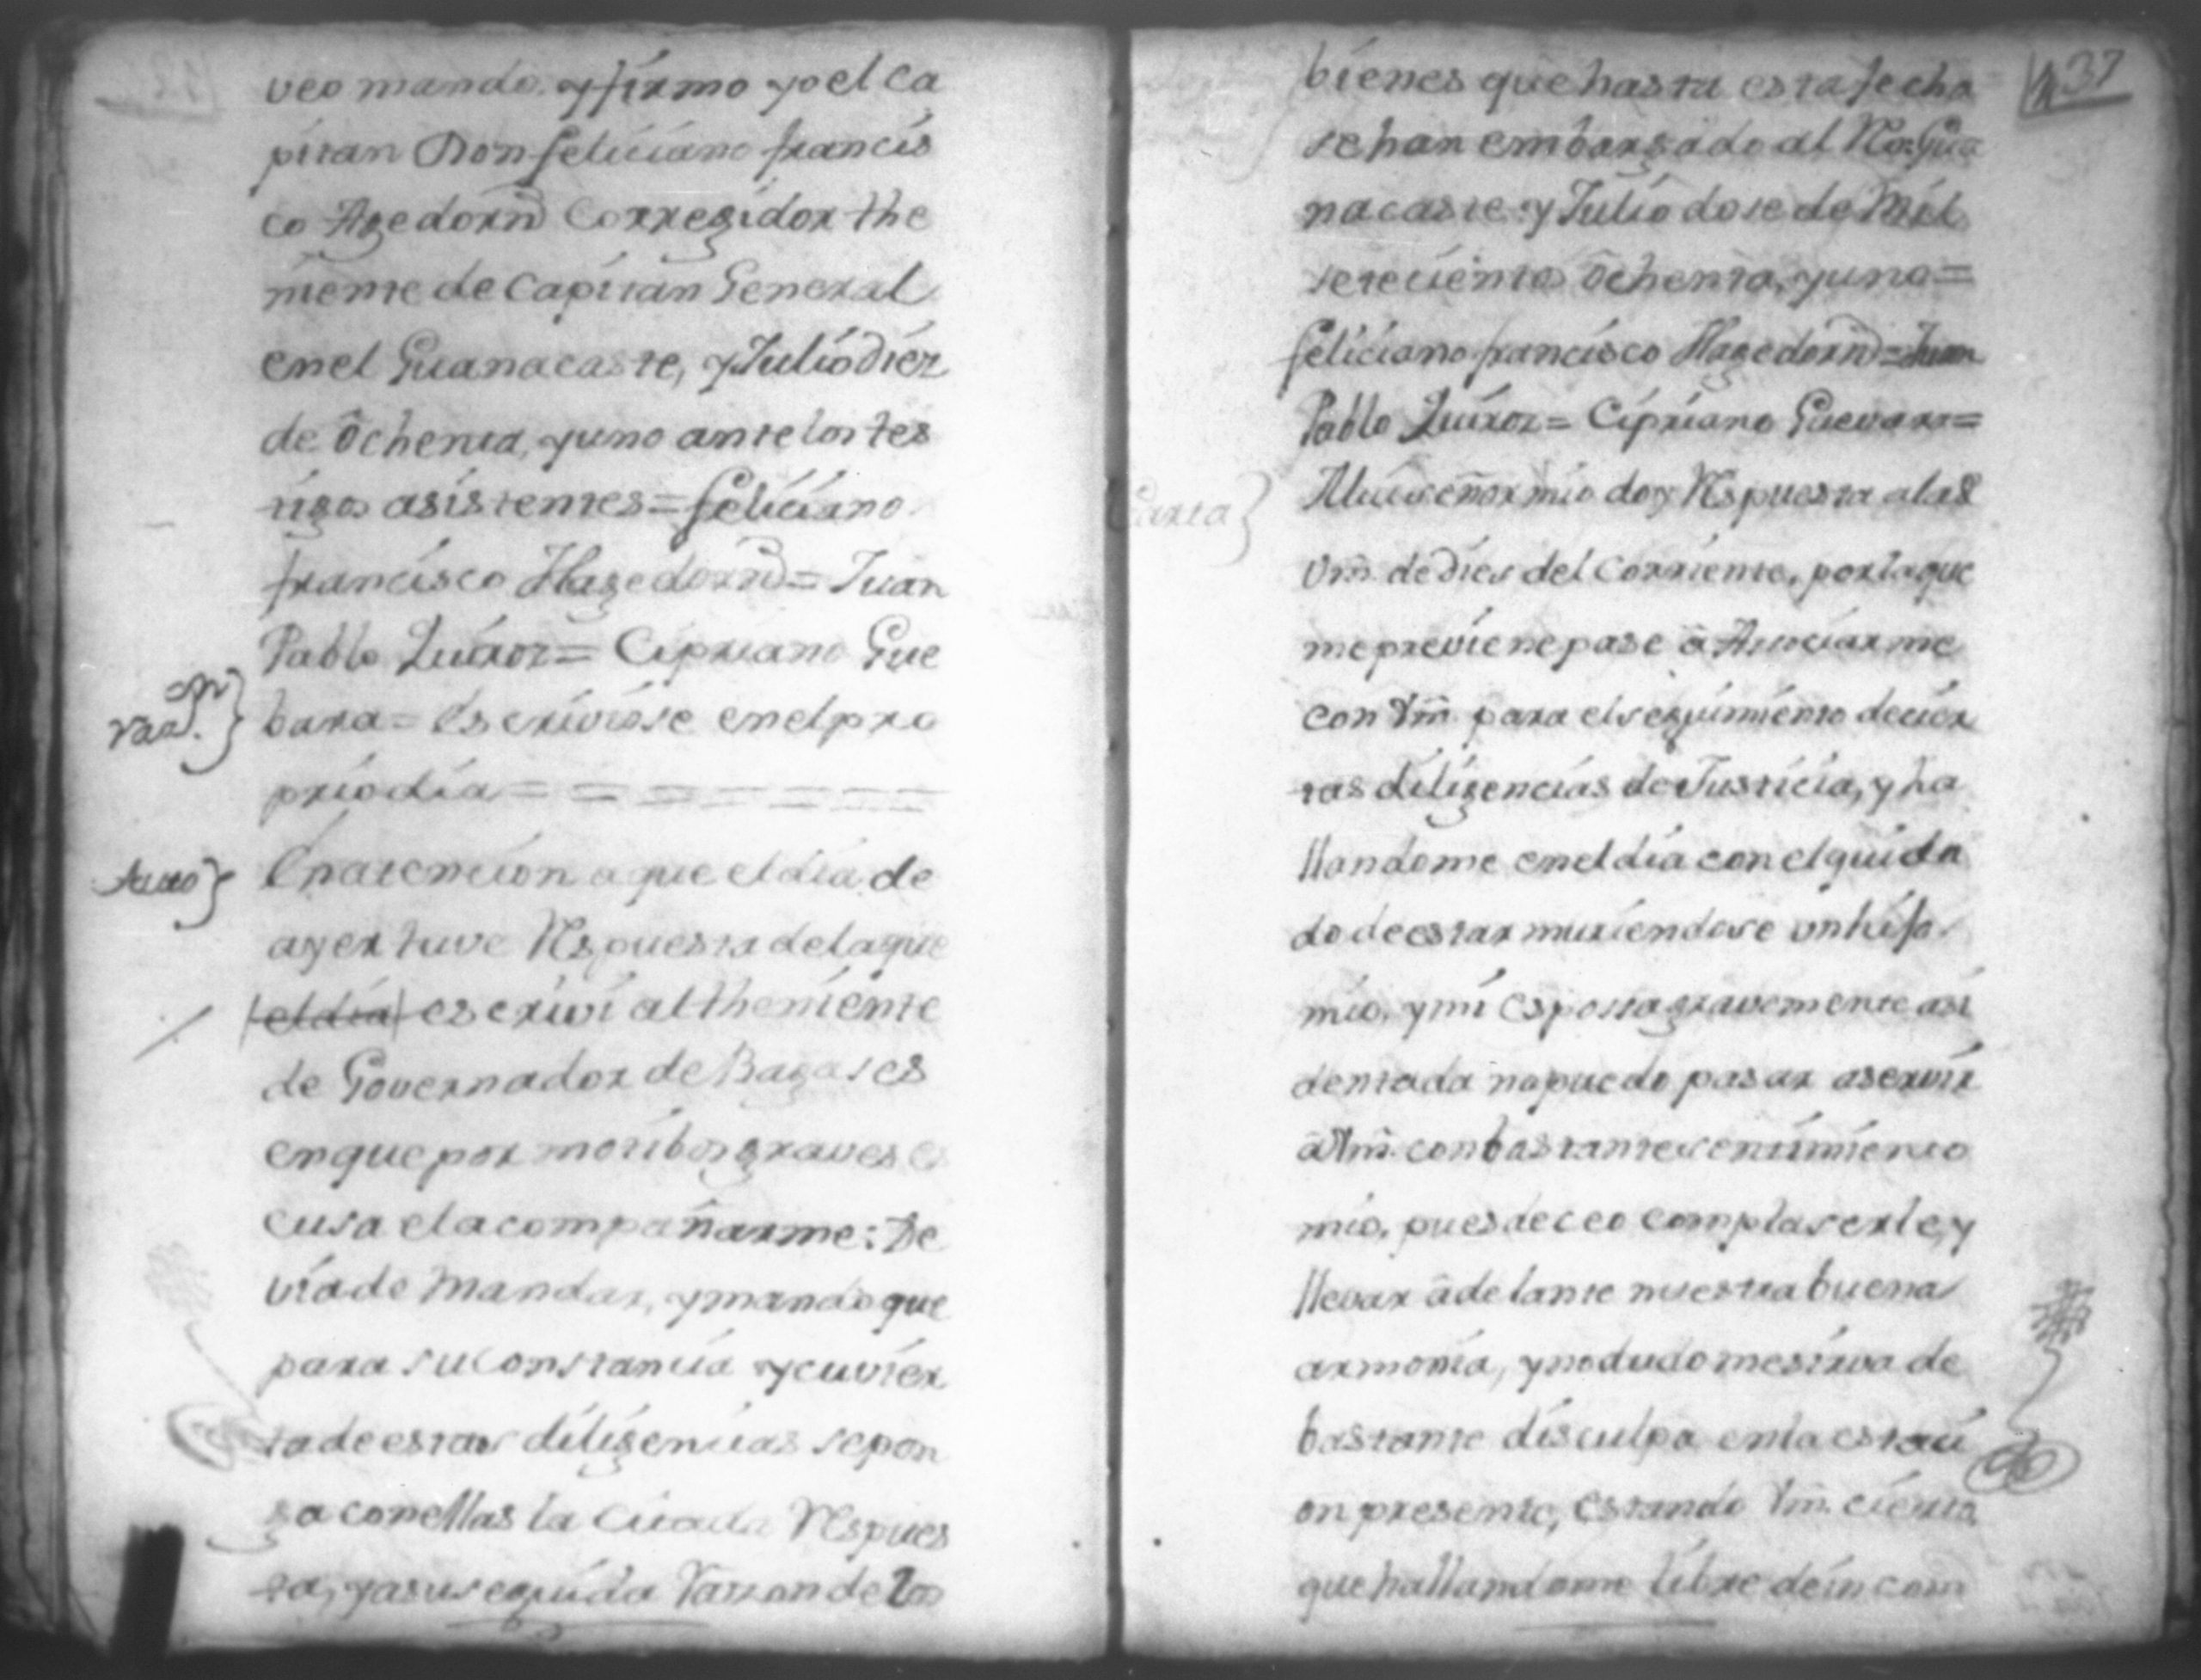 veo mando. y firmo yo el Ca
pitan Don feliciano francis
co Agedorn Corregidor the
niente de Capitan General
en el Guanacaste, y Julio diez
de ôchenta, y uno ante los tes
tigos asistentes = feliciano
francisco Hagedorn = Juan
Pablo Quiroz = Cipriano Gue
bara = Escriviose en el pro
prio dia = = = = = = =
Auto}
En atencion a que el dia de
ayer tuve Respuesta de la que
el dia escrivi al theniente
de Governador de Bagases
en que por motibos graves es
cusa el acompañarme: De
via de mandar, y mando que
para su constancia y cuvier
ta de estas diligencias se pon
ga con ellas la citada Respues
ta, y a su seguida Razon de los
137
bienes que hasta esta fecha
se han embargado al Reo. Gua
nacaste y Julio dose de Mil
setecientos ôchenta, y uno =
feliciano francisco Hagedorn = Juan
Pablo Quiroz = Cipriano Guevara =
Carta}
Mui señor mio doy Respuesta a la de
Vm. de dies del Corriente, por la que
me previene pase â Asociarme
con Vm. para el seguimiento de cier
tas diligencias de Justicia, y ha
llandome en el dia con el quida
do de estar muriendose un hijo
mio, y mi esposa gravemente asi
dentada no puedo pasar a servir
â Vm. con bastante sentimiento
mio, pues deceo complaserle, y
llevar âdelante nuestra buena
armonia, y no dudo me sirva de
bastante disculpa en la estaci
on presente, estando Vm. cierto
que hallandome libre de incom